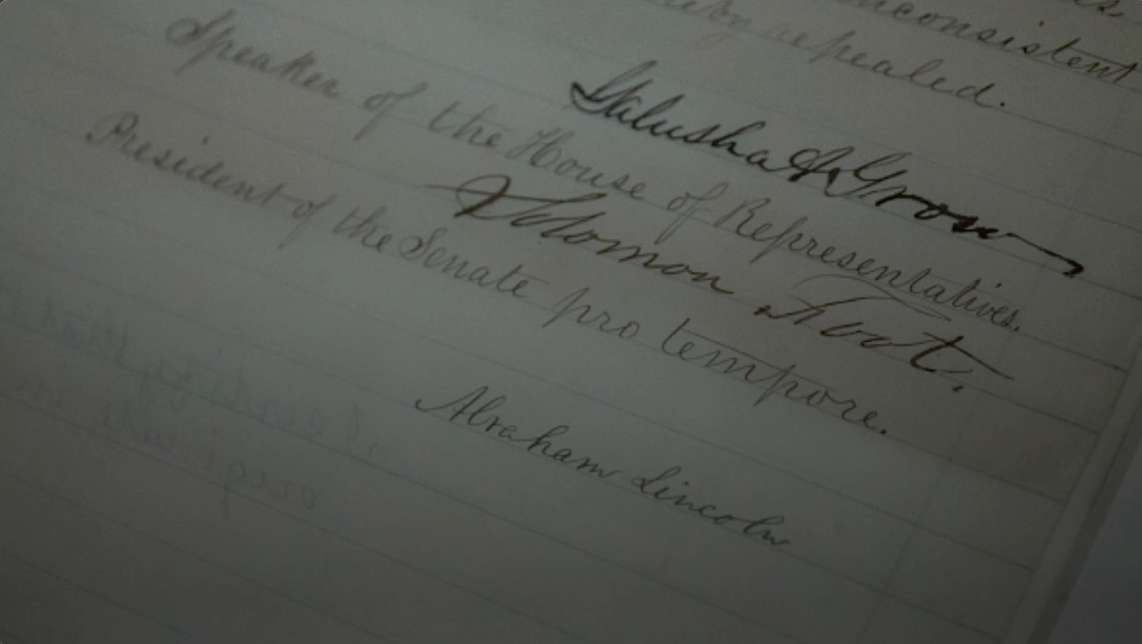 inconsistent
repealed.
Galusha A Grow
Speaker of the House of Representatives.
Solomon Foot.
President of the Senate pro tempore.
Abraham Lincoln